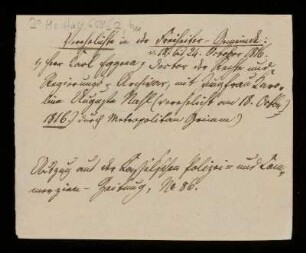 Verehelichte in der Freiheiter-Gemeinde:
v. 18. bis 24. October 1816.
1, Herr Carl Eggena, Doctor der Rechte und
Regierungs-Archivar, mit Jungfrau Caro-
line Auguste Nahl (verehelicht am 18. Octbr
1816) durch Metropolitan
Auszug aus der Kasselschen Polizei- und Com-
merzien-Zeitung, No 86.